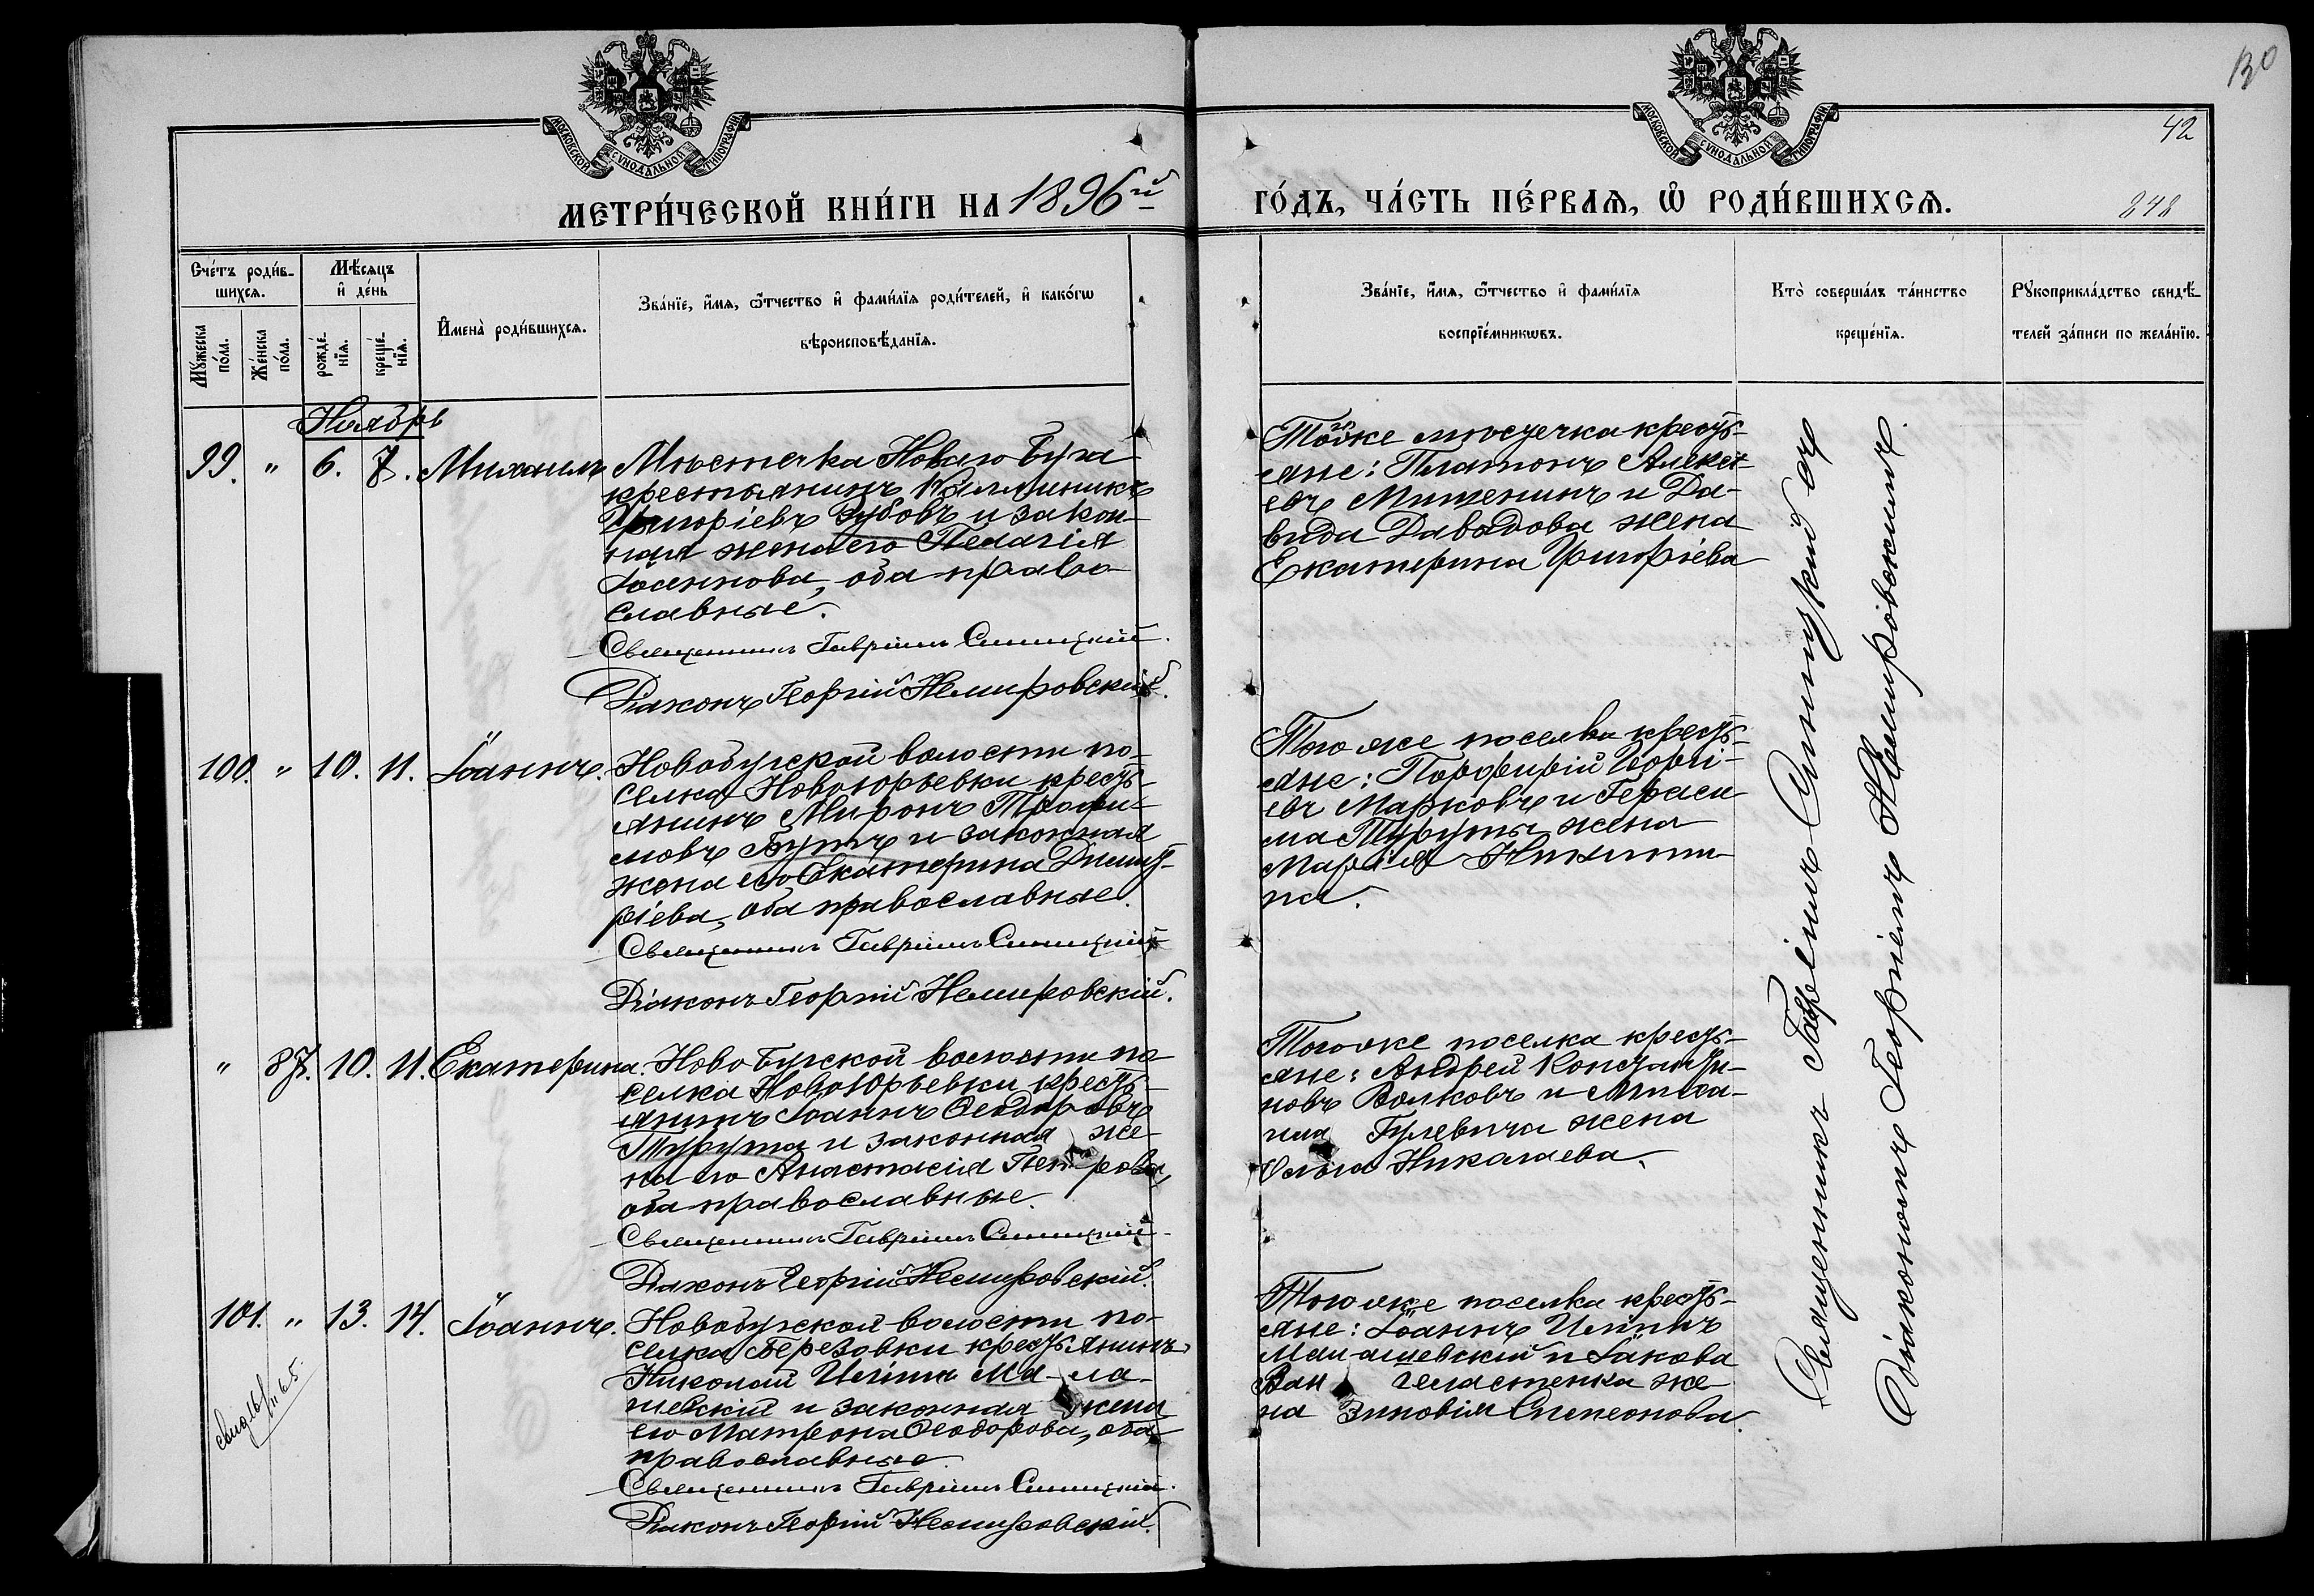 130
42
248
МОСКОВСКОЙ СѴНОДАЛЬНОЙ ТИПОГРАФІИ
МОСКОВСКОЙ СѴНОДАЛЬНОЙ ТИПОГРАФІИ
МЕТРИ́ЧЕСКОЙ КНИ́ГИ НА 1896й
ГО́ДЪ, ЧА́СТЬ ПЕ́РВАѦ, Ѡ РОДИ́ВШИХСѦ.
Сче́тъ роди́в-
шихсѧ.
Мꙋ́жеска
по́ла.
Же́нска
по́ла.
Мѣ́сѧцъ
и҆ де́нь
рожде́-
нїѧ.
креще́-
нїѧ.
И҆мена̀ роди́вшихсѧ.
Зва́нїе, и҆́мѧ, ѻ҆́тчество и҆ фами́лїѧ роди́телей, и҆ како́гѡ
вѣроисповѣ́данїѧ.
Зва́нїе, и҆́мѧ, ѻ҆́тчество и҆ фами́лїѧ
воспрїе́мникѡвъ.
Кто̀ соверша́лъ та́инство
креще́нїѧ.
Рꙋкоприкла́дство свидѣ́-
телей за́писи по жела́нїю.
Ноябрь
99. " 6. 7. Михаилъ
Мѣстечка Новаго Буга
крестьянинъ Каллиникъ
Григоріевъ Зубовъ и закон-
ная жена его Пелагія
Іоаннова, оба право-
славные.
Священникъ Гавріилъ Синицкій.
Діаконъ Георгій Немировскій.
Того же мѣстечка кресть-
яне: Платонъ Алексѣ-
евъ Митенинъ и Да-
вида Давыдова жена
Екатерина Григоріева
100. " 10. 11. Іоаннъ.
Новобугской волости по-
селка Новоюрьевки кресть-
янинъ Миронъ Трофи-
мовъ Бутъ и законная
жена его Екатерина Димит-
ріева, оба православные.
Священникъ Гавріилъ Синицкій
Діаконъ Георгій Немировскій.
Того же поселка кресть-
яне: Порфирій Георгі-
евъ Марковъ и Гераси-
ма Туруты жена
Марія Никити-
на.
" 87. 10. 11. Екатерина.
Ново Бугской волости по-
селка Новоюрьевки кресть-
янинъ Іоаннъ Ѳеодоровъ
Турута и законная же-
на его Анастасія Петрова,
оба православные.
Священникъ Гавріилъ Синицкій
Діаконъ Георгій Немировскій.
Того же поселка кресть-
яне: Андрей Константи-
новъ Волковъ и Миха-
ила Гулевича жена
Ольга Николаева.
101. " 13. 14. Іоаннъ.
Новобугской волости по-
селка Березовки крестьянинъ
Николай Ильинъ Ма-ла-
шевскій и законная жена
его Матрона Ѳеодорова, оба
православные.
Священникъ Гавріилъ Синицкій.
Діаконъ Георгій Немировскій.
Того же поселка кресть-
яне: Іоаннъ Ильинъ
Малашевскій и Іакова
же-
на Зиновія Симеонова.
Священникъ Гавріилъ Синицкій съ
Діакономъ Георгіемъ Немировскимъ.